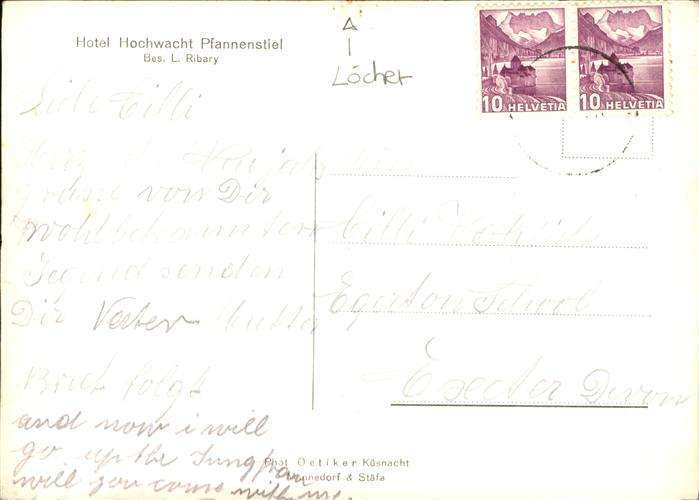 Hotel Hochwacht Pfannenstiel
Bes. L. Ribary
Löcher
10 HELVETIA
10 HELVETIA
Cilli
von Dir
wohlbekannter
Jugend senden
Dir Vater Mutter
Brief folgt
and now i will
go up the Jungfrau
will you come with me
Cilli
Egerton School
Exeter Devon
Phot Oetiker Küsnacht
Männedorf & Stäfa